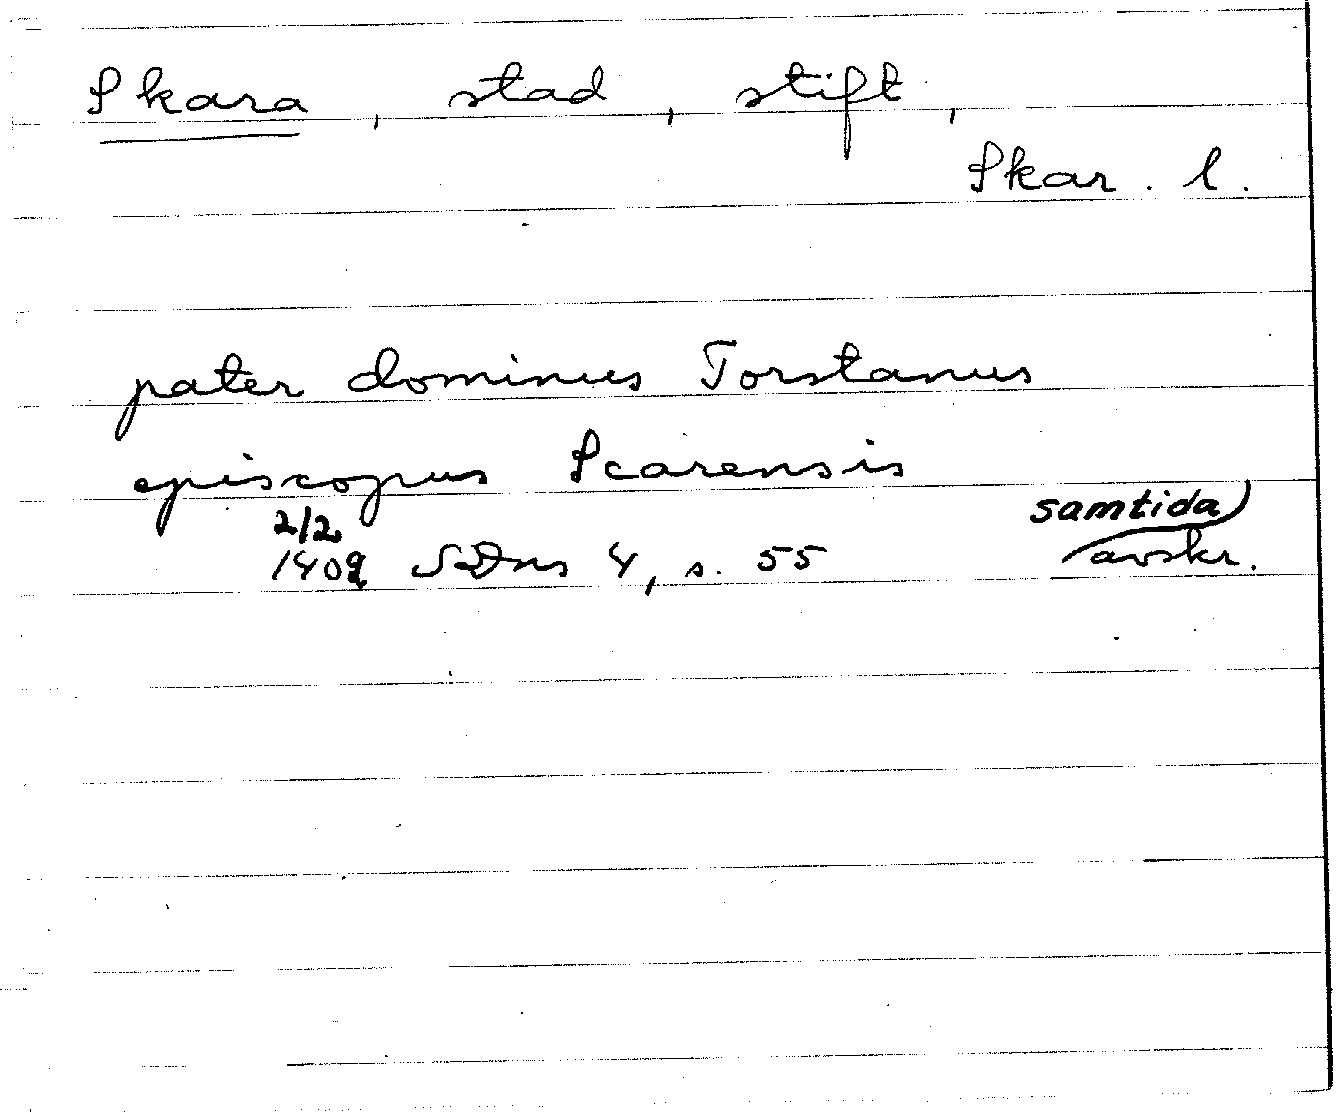 Skara, stad, stift,
Skar. l.
pater dominus Torstanus
episcopus Scarensis
2/2 samtida
1409 SDns 4, s. 55 avskr.